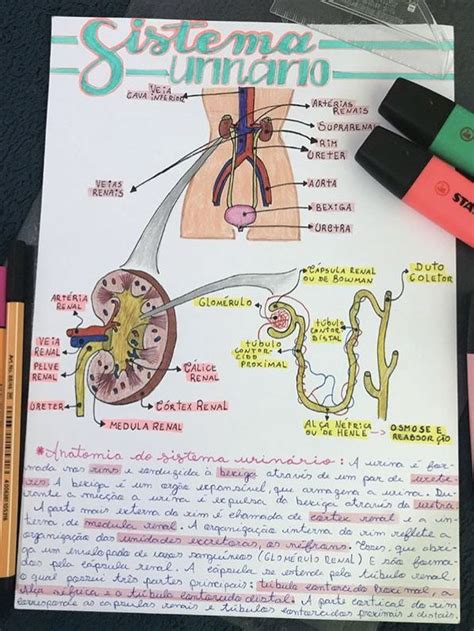 Sistema
urinário
VEIA
CAVA INFERIOR
ARTÉRIAS
RENAIS
SUPRARENAL
RIM
URETER
VEIAS
RENAIS
AORTA
BEXIGA
URETRA
CÁPSULA RENAL
OU DE BOWMAN
DUTO
COLETOR
GLOMÉRULO
ARTÉRIA
RENAL
TÚBULO
CONTOR
DISTAL
TÚBULO
CONTOR-
CIDO
PROXIMAL
VEIA
RENAL
PELVE
RENAL
CÁLICE
RENAL
URETER
CÓRTEX RENAL
MEDULA RENAL
ALÇA NÉFRICA
OU DE HENLE → OSMOSE E
REABSORÇÃO
*Anatomia do sistema urinário: A urina é for-
mada nos rins e conduzida à bexiga através de um par de urete-
res. A bexiga é um órgão expansível, que armazena a urina. Du-
rante a micção a urina é expulsa da bexiga através da uretra.
A parte mais externa do rim é chamada de córtex renal e a in-
terna de medula renal. A organização interna do rim reflete a
organização das unidades excretoras, os néfrons. Esses, que abri-
ga um enovelado de vasos sanguíneos (GLOMÉRULO RENAL) e são forma-
das pela cápsula renal. A cápsula se estende pelo túbulo renal,
o qual possui três partes principais: túbulo contorcido proximal, a
alça néfrica e o túbulo contorcido distal. A parte cortical do rim
corresponde as cápsulas renais e túbulos contorcidos proximais e distais,
STA